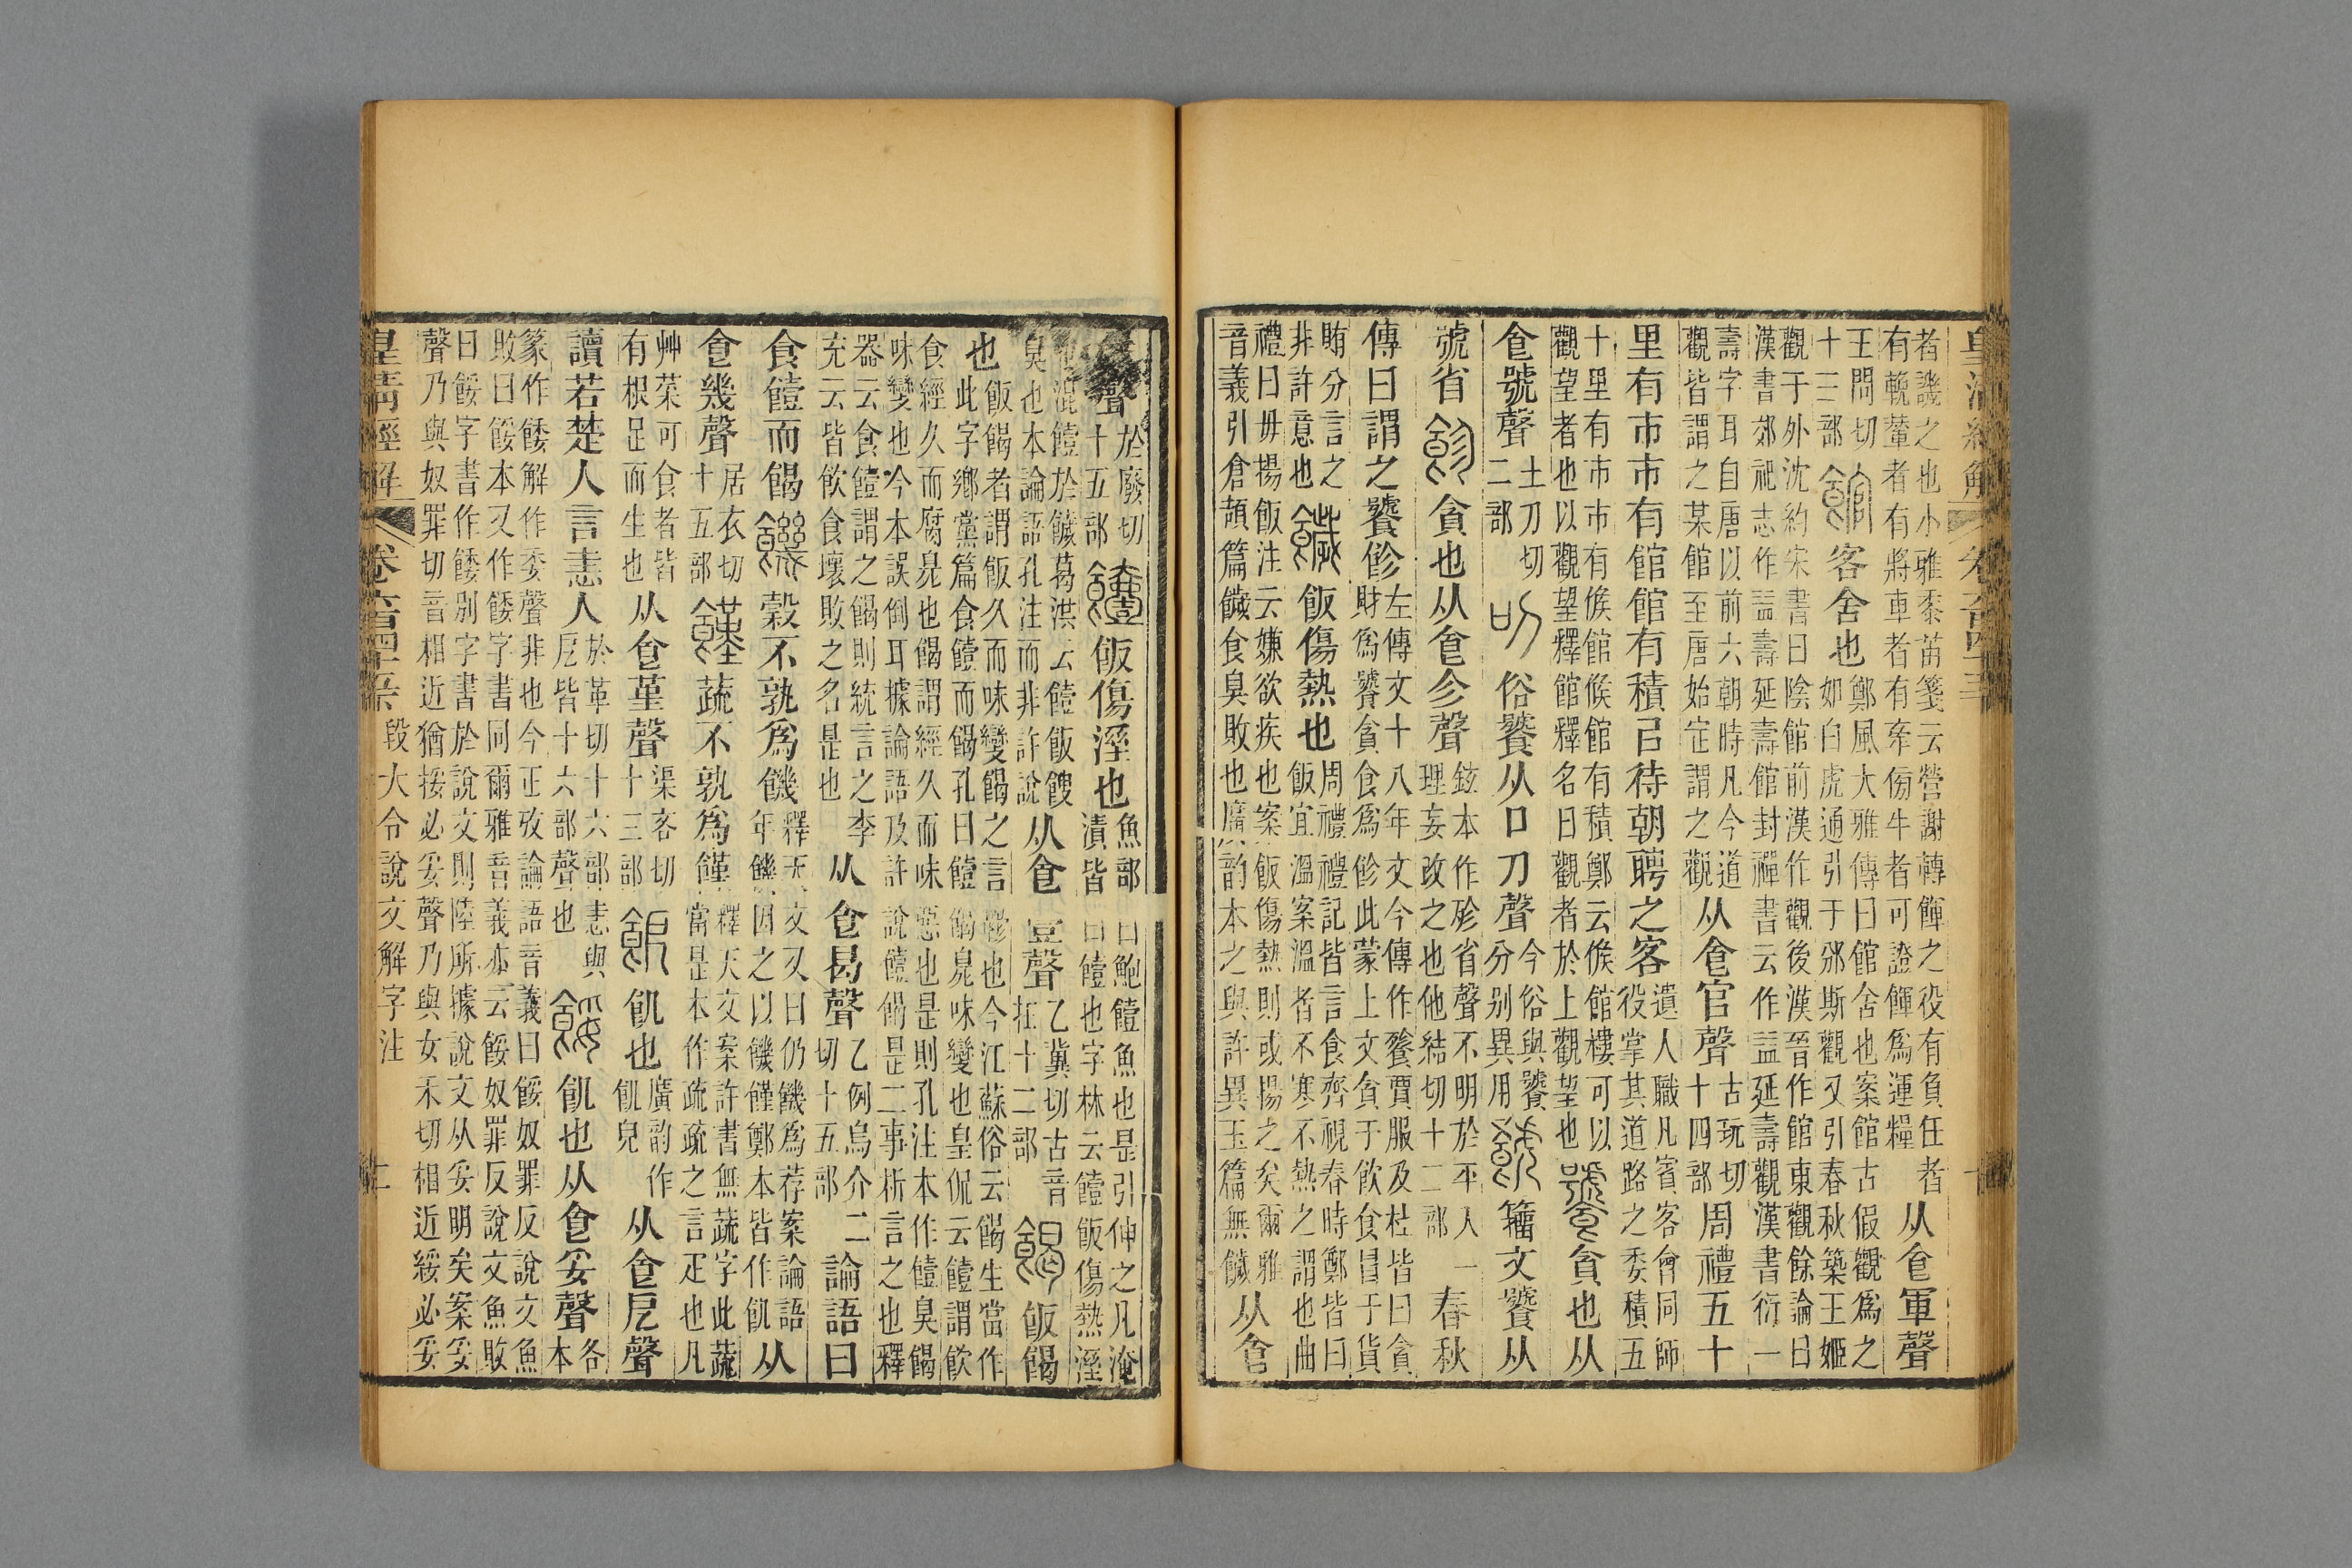 皇清經解
者譏之也小雅黍苗箋云營謝轉餫之役有負任者有輓輦者有將車者有牽傍牛者可證餫爲運糧从𠊊軍聲
王問切十三部館客舍也鄭風大雅傳曰館舍也案館古假觀爲之如白虎通引于邠斯觀又引春秋築王姬
觀于外沈約宋書曰陰館前漢作觀後漢晉作館東觀餘論曰漢書郊祀志作益壽延壽館封禪書云作益延壽觀漢書衍一
壽字耳自唐以前六朝時凡今道觀皆謂之某館至唐始定謂之觀从𠊊官聲古玩切十四部周禮五十
里有市市有館館有積㠯待朝聘之客遺人職凡賓客會同師役掌其道路之委積五
十里有市市有候館候館有積鄭云候館樓可以觀望者也以觀望釋館釋名曰觀者於上觀望也饕貪也从
𠊊號聲土刀切二部叨俗饕从口刀聲今俗與饕分別異用籒文饕从
號省飻貪也从𠊊㐱聲鉉本作殄省聲不明於平入一理妄改之也他結切十二部春秋
傳曰謂之饕飻左傳文十八年文今傳作餮賈服及杜皆曰貪財爲饕貪食爲飻此蒙上文貪于飲食冒于貨
賄分言之非許意也饖飯傷熱也周禮禮記皆言食齊視春時鄭皆曰飯宜溫案溫者不寒不熱之謂也曲
禮曰毋揚飯注云嫌欲疾也案飯傷熱則或揚之矣爾雅音義引倉頡篇饖食臭敗也廣韵本之與許異玉篇無饖从𠊊
聲於廢切十五部饐飯傷溼也魚部曰鮑饐魚也是引伸之凡淹漬皆曰饐也字林云饐飯傷熱溼
也混饐於饖葛洪云饐飯餿臭也本論語孔注而非許說从𠊊壹聲乙冀切古音在十二部餲飯餲
也飯餲者謂飯久而味變餲之言鬱也今江蘇俗云餲生當作此字鄉黨篇食饐而餲孔曰饐餲臭味變也皇侃云饐謂飲
食經久而腐臭也餲謂經久而味惡也是則孔注本作饐臭餲味變也今本誤倒耳據論語及許說饐餲是二事析言之也釋
器云食饐謂之餲則統言之李充云皆飲食壞敗之名是也从𠊊曷聲乙例烏介二切十五部論語曰
食饐而餲饑穀不孰爲饑釋天文又曰仍饑爲荐案論語年饑因之以饑饉鄭本皆作飢从
𠊊幾聲居衣切十五部饉蔬不孰爲饉釋天文案許書無蔬字此蔬當是本作疏疏之言疋也凡
艸菜可食者皆有根足而生也从𠊊堇聲渠吝切十三部飢也廣韵作飢皃从𠊊戹聲
讀若楚人言恚人於革切十六部恚與戹皆十六部聲也餒飢也从𠊊妥聲各本
篆作餧解作委聲非也今正攷論語音義曰餒奴罪反說文魚敗曰餒本又作餧字書同爾雅音義亦云餒奴罪反說文魚敗
曰餒字書作餧別字書於說文則陸所據說文从妥明矣案妥聲乃與奴罪切音相近猶挼必妥聲乃與女禾切相近綏必妥
皇清經解 段大令說文解字注